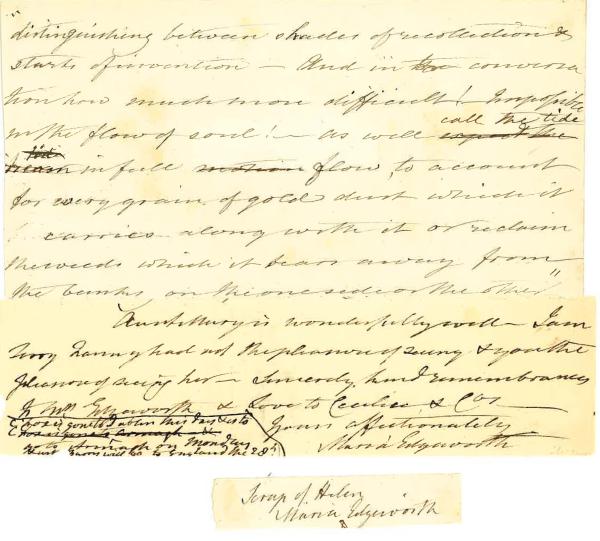 distinguishing between shades of recollection &
starts of invention — And in conversa
tion how much more difficult! Impossible
in the flow of soul! — as well call the tide
in full flow, to account
for every grain of gold dust which it
carries along with it or reclaim
the weeds which it tears away from
the banks, on the one side or the other"
Aunt Mary is wonderfully well — I am
sorry Fanny had not the pleasure of seeing & you the
pleasure of seeing her — Sincerely kind remembrances
to Mrs Edgeworth & Love to Cecilia & Co
Yours affectionately
Maria Edgeworth
is gone to Dublin this day & is to
on Monday
to England the 28th
Scrap of Helen
Maria Edgeworth